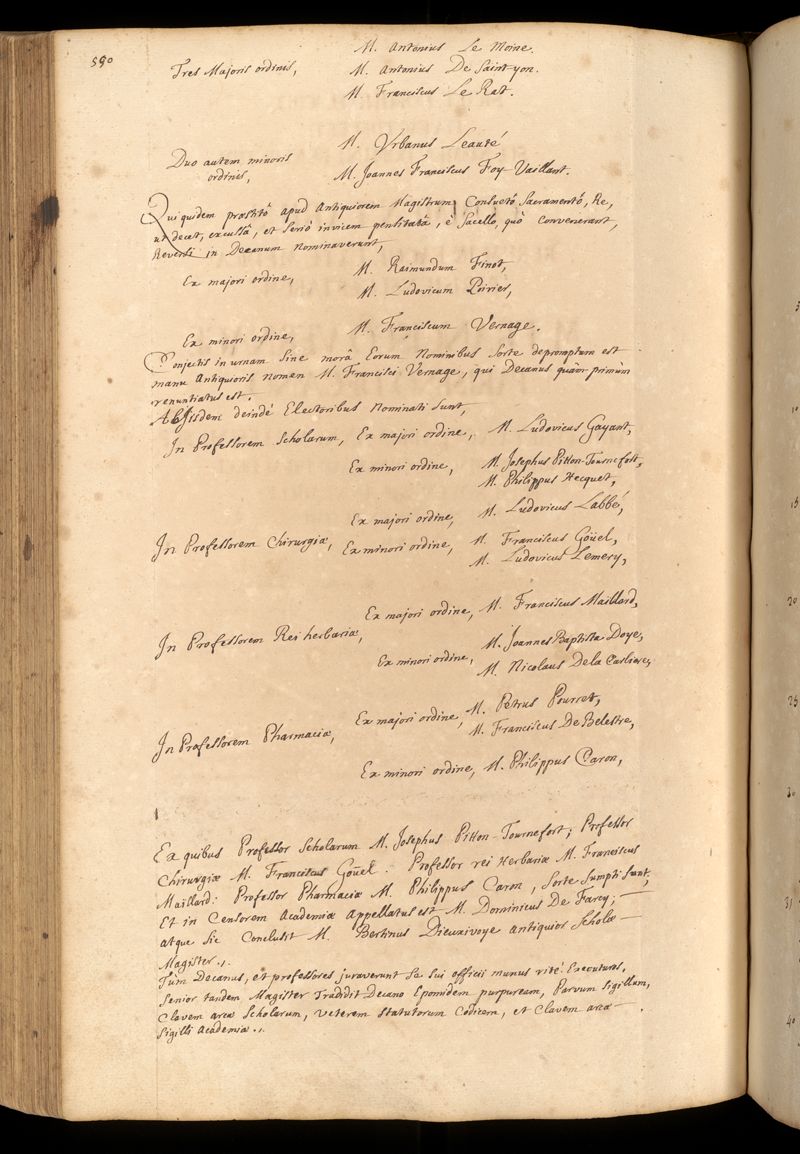 590
M. Antonius Le Moine.
Tres Majoris ordinis, M. Antonius De Saint yon.
M. Franciscus Le Rat.
M. Vrbanus Leauté
Duo autem minoris
ordinis, M. Joannes Franciscus Foy Vaillant.
Qui quidem præstitô apud Antiquiorem Magistrum Consuetô Sacramentô, Re,
ut decet, excussâ, et seriò invicem pensitatâ, è Sacello, quò convenerant,
Reversi in Decanum nominaverunt,
Ex majori ordine, M. Raimundum Finot,
M. Ludovicum Poirier,
Ex minori ordine, M. Franciscum Vernage.
Conjectis in urnam sine morâ Eorum Nominibus sorte depromptum est
manu Antiquioris nomen M. Francisci Vernage, qui Decanus primùm
renuntiatus est.
Ab Iisdem deindè Electoribus Nominati sunt,
In Professorem Scholarum, Ex majori ordine, M. Ludovicus Gayant,
Ex minori ordine, M. Josephus Pitton-Tournefort,
M. Philippus Hecquet,
Ex majori ordine, M. Ludovicus Labbé,
In Professorem Chirurgiæ, Ex minori ordine, M. Franciscus Goüel,
M. Ludovicus Lemery,
Ex majori ordine, M. Franciscus Maillard,
In Professorem Rei herbariæ,
M. Joannes Baptista Doye,
Ex minori ordine, M. Nicolaus De la Carliere,
Ex majori ordine, M. Petrus Pourret,
M. Franciscus De Belestre,
In Professorem Pharmaciæ,
Ex minori ordine, M. Philippus Caron,
Ex quibus Professor Scholarum M. Josephus Pitton-Tournefort; Professor
Chirurgiæ M. Franciscus Goüel. Professor rei Herbariæ M. Franciscus
Maillard: Professor Pharmaciæ M. Philippus Caron, sorte sumpti sunt;
Et in Censorem Academiæ Appellatus est M. Dominicus De Farcy;
atque sic Conclusit M. Bertinus Dieuxivoye antiquior Scholæ
Magister.,.
Tùm Decanus, et professores juraverunt se sui officii munus ritè Executuros,
Senior tandem Magister Tradidit Decano Epomidem purpuream, Parvum sigillum,
Clavem arcæ Scholarum, veterem statutorum Codicem, et Clavem arcæ
Sigilli Academiæ.,.